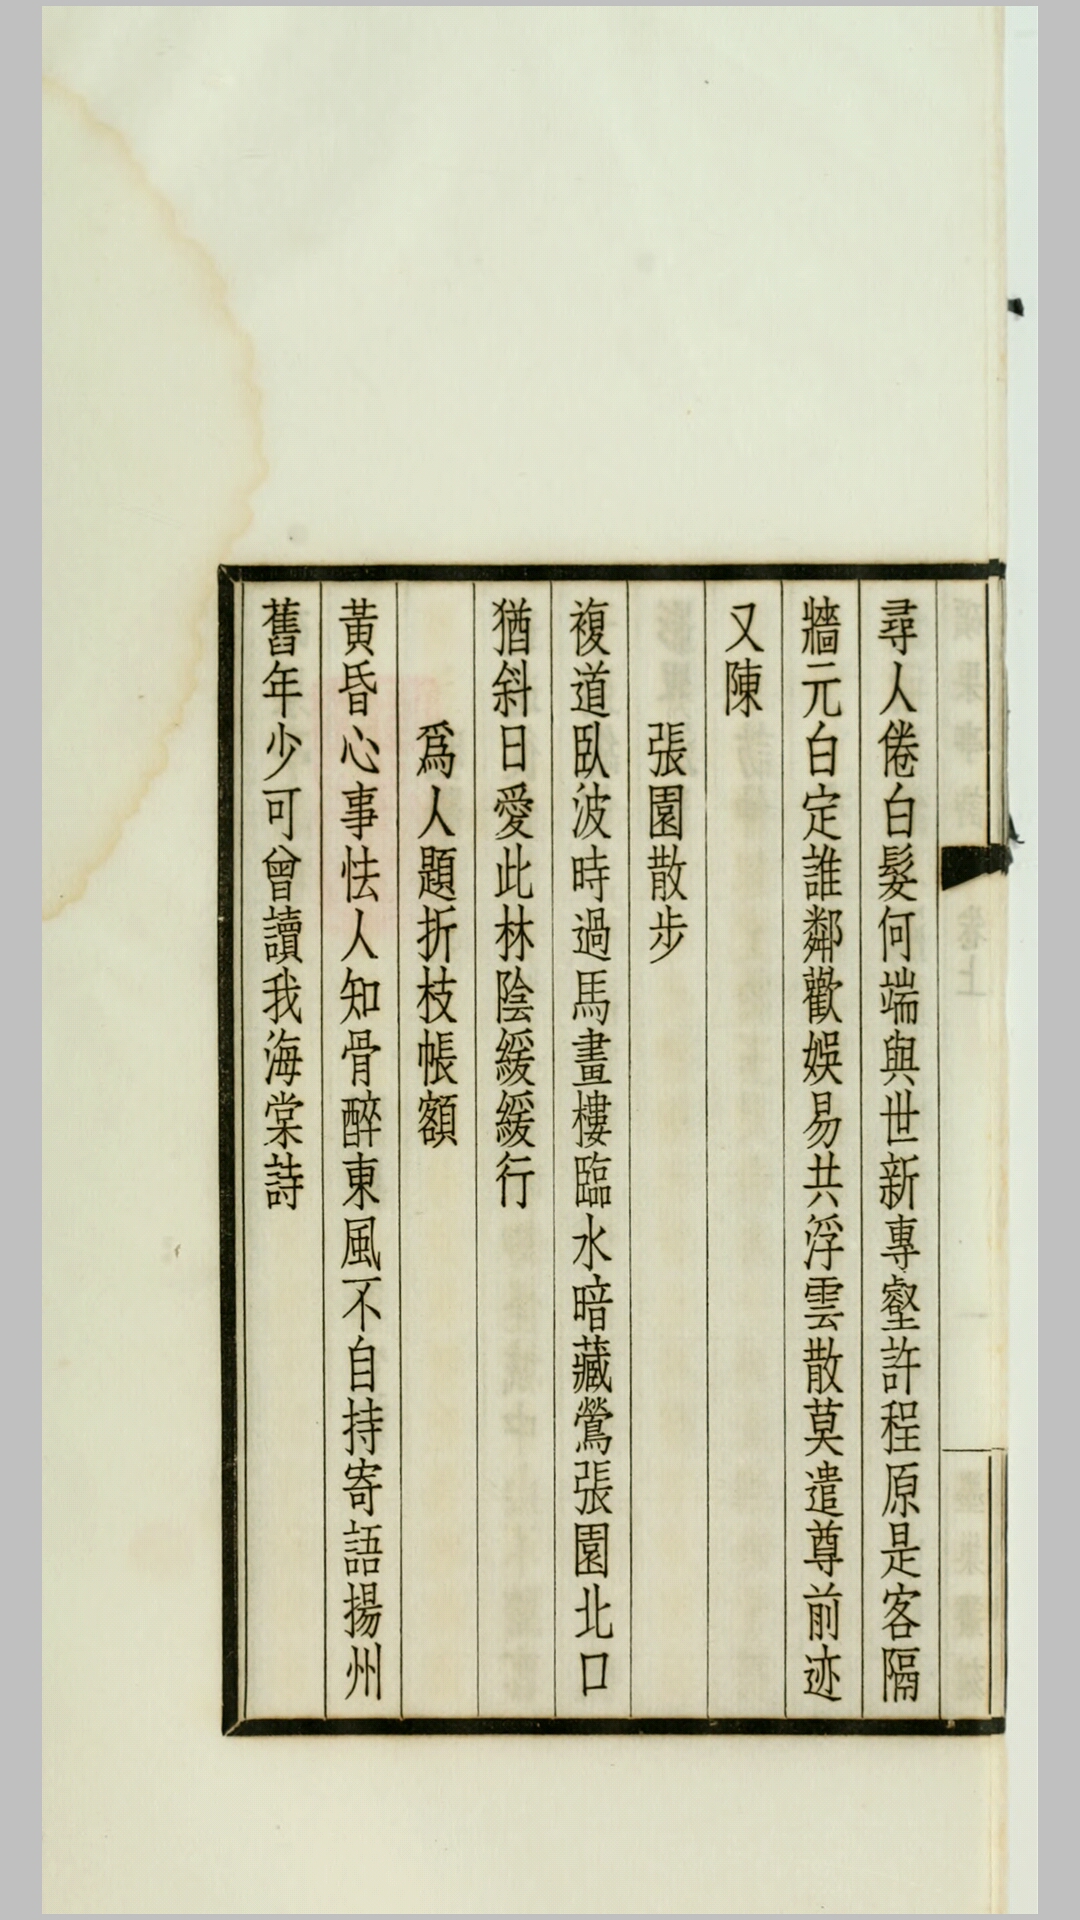 尋人倦白髮何端與世新專壑許程原是客隔
牆元白定誰鄰歡娛易共浮雲散莫遣尊前迹
又陳
張園散步
複道臥波時過馬畫樓臨水暗藏鶯張園北口
猶斜日愛此林陰緩緩行
爲人題折枝帳額
黃昏心事怯人知骨醉東風不自持寄語揚州
舊年少可曾讀我海棠詩